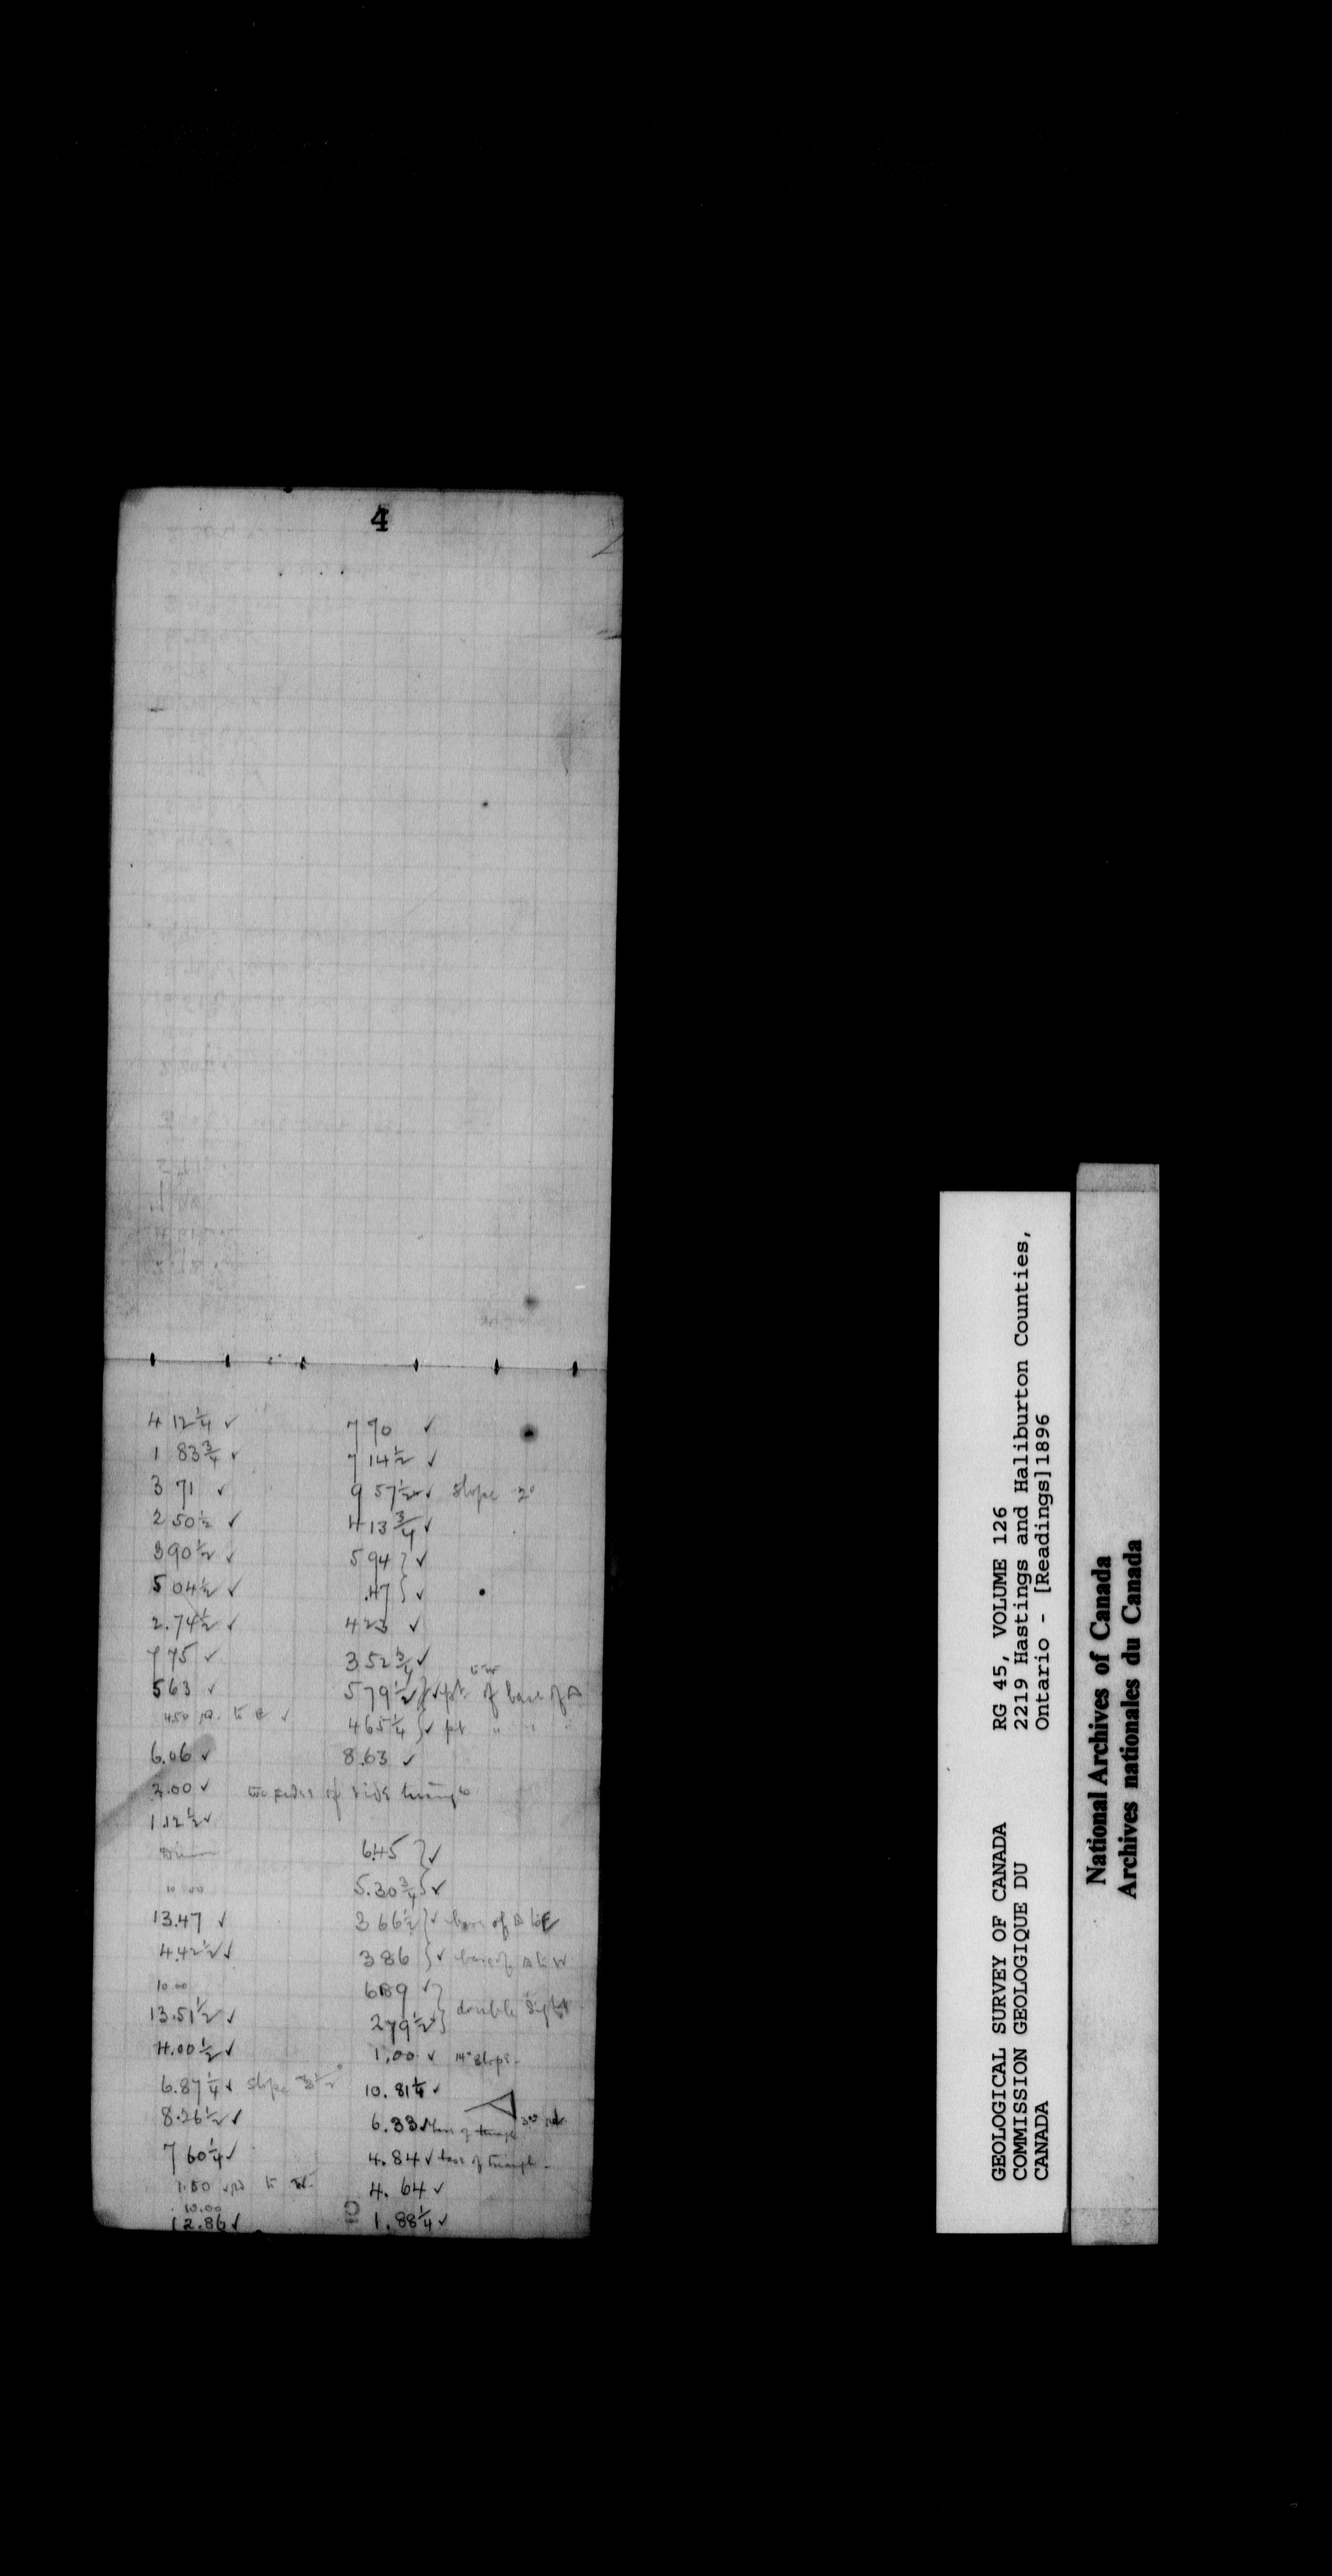 4
4 12 1/4 ✓
1 83 3/4 ✓
3 71 ✓
2 50 1/2 ✓
3 90 1/2 ✓
5 04 1/2 ✓
2.74 1/2 ✓
7 75 ✓
563 ✓
450 to ✓
6.06 ✓
3.00 ✓ two sides of side triangle
1.12 1/2 ✓
10 00
13.47 ✓
4.42 1/2 ✓
10 00
13.51 1/2 ✓
4.00 1/2 ✓
6.87 1/4 ✓ slope 3 1/2°
8.26 1/2 ✓
7 60 1/4 ✓
1.50 to W.
10.00
12.86 ✓
7 90 ✓
7 14 1/2 ✓
9 57 1/2 ✓ slope 2°
4 13 3/4 ✓
5 94 } ✓
.47 } ✓
4 23 ✓
3 52 3/4 ✓
5 79 1/2 } ✓ pt of base of Δ
4 65 1/4 } ✓ pt " " "
8.63 ✓
6.45 } ✓
5.30 3/4 } ✓
3 66 1/2 } ✓ base of Δ to E
3 86 } ✓ base of Δ to W
6 89 ✓ }
2 79 1/2 ✓ } double sight
1.00 ✓ 14° slope
10.81 1/4 ✓
6.33 ✓ base of triangle
4.84 ✓ base of triangle
4.64 ✓
1.88 1/4 ✓
GEOLOGICAL SURVEY OF CANADA
COMMISSION GEOLOGIQUE DU
CANADA
RG 45, VOLUME 126
2219 Hastings and Haliburton Counties,
Ontario - [Readings]1896
National Archives of Canada
Archives nationales du Canada